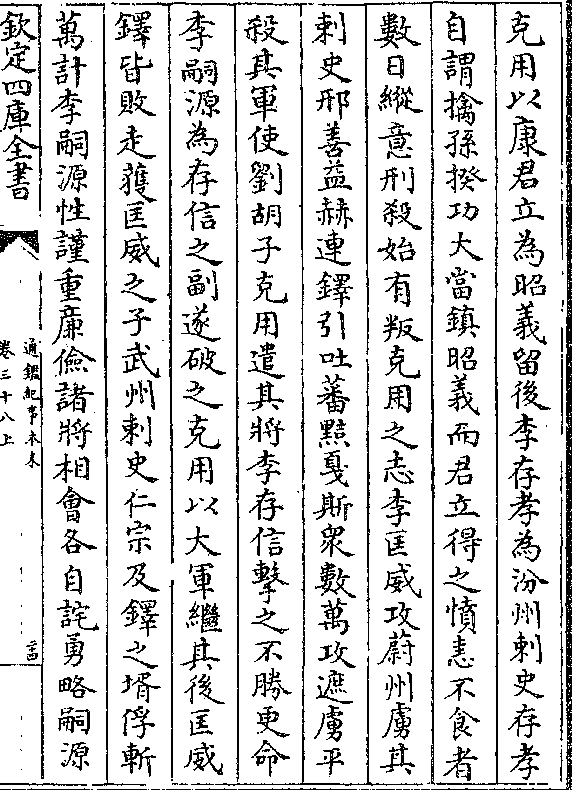 克用以康君立為昭義留後李存孝為汾州刺史存孝
自謂擒孫揆功大當鎮昭義而君立得之憤恚不食者
數日縱意刑殺始有叛克用之志李匡威攻蔚州虜其
刺史邢善益赫連鐸引吐蕃黠戛斯衆數萬攻遮虜平
殺其軍使劉胡子克用遣其將李存信擊之不勝更命
李嗣源為存信之副遂破之克用以大軍繼其後匡威
鐸皆敗走獲匡威之子武州刺史仁宗及鐸之壻俘斬
萬計李嗣源性謹重廉儉諸將相會各自詫勇略嗣源
欽定四庫全書
通鑑紀事本末
卷三十八上
二四